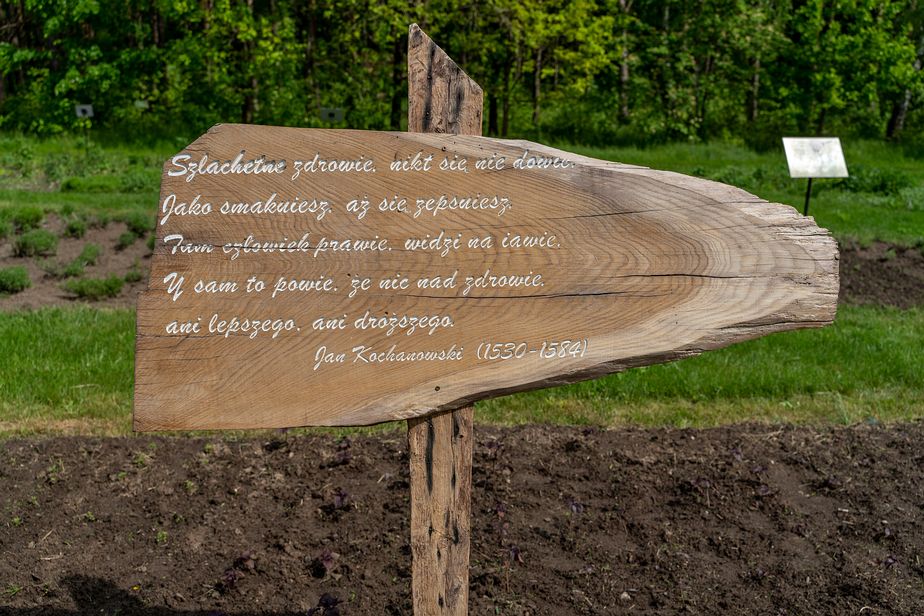 Szlachetne zdrowie, nikt się nie dowie,
Jako smakujesz, aż się zepsujesz.
Tam człowiek prawie, widzi na jawie,
Y sam to powie, że nic nad zdrowie,
ani lepszego, ani droższego.
Jan Kochanowski (1530-1584)